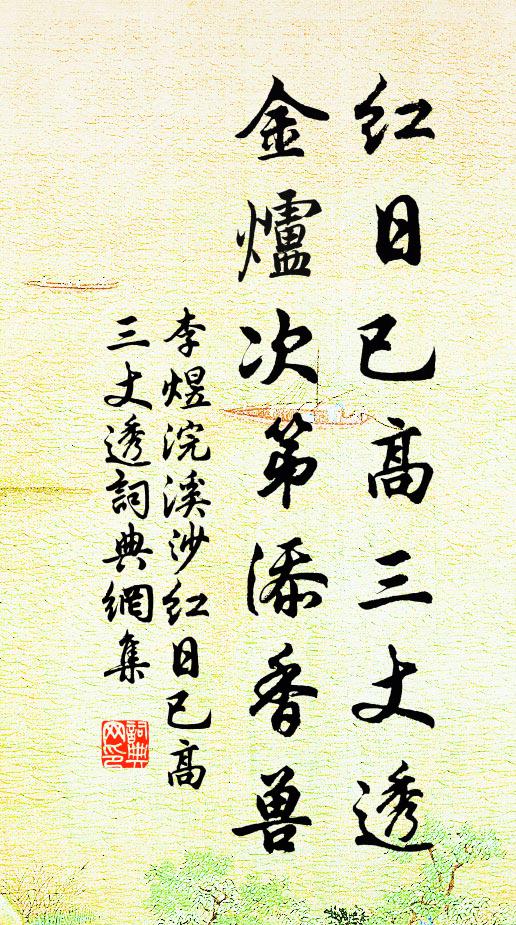 紅日已高三丈透
金爐次第添香兽
李煜浣溪沙紅日已高
三丈透詞典網集
詞典网印